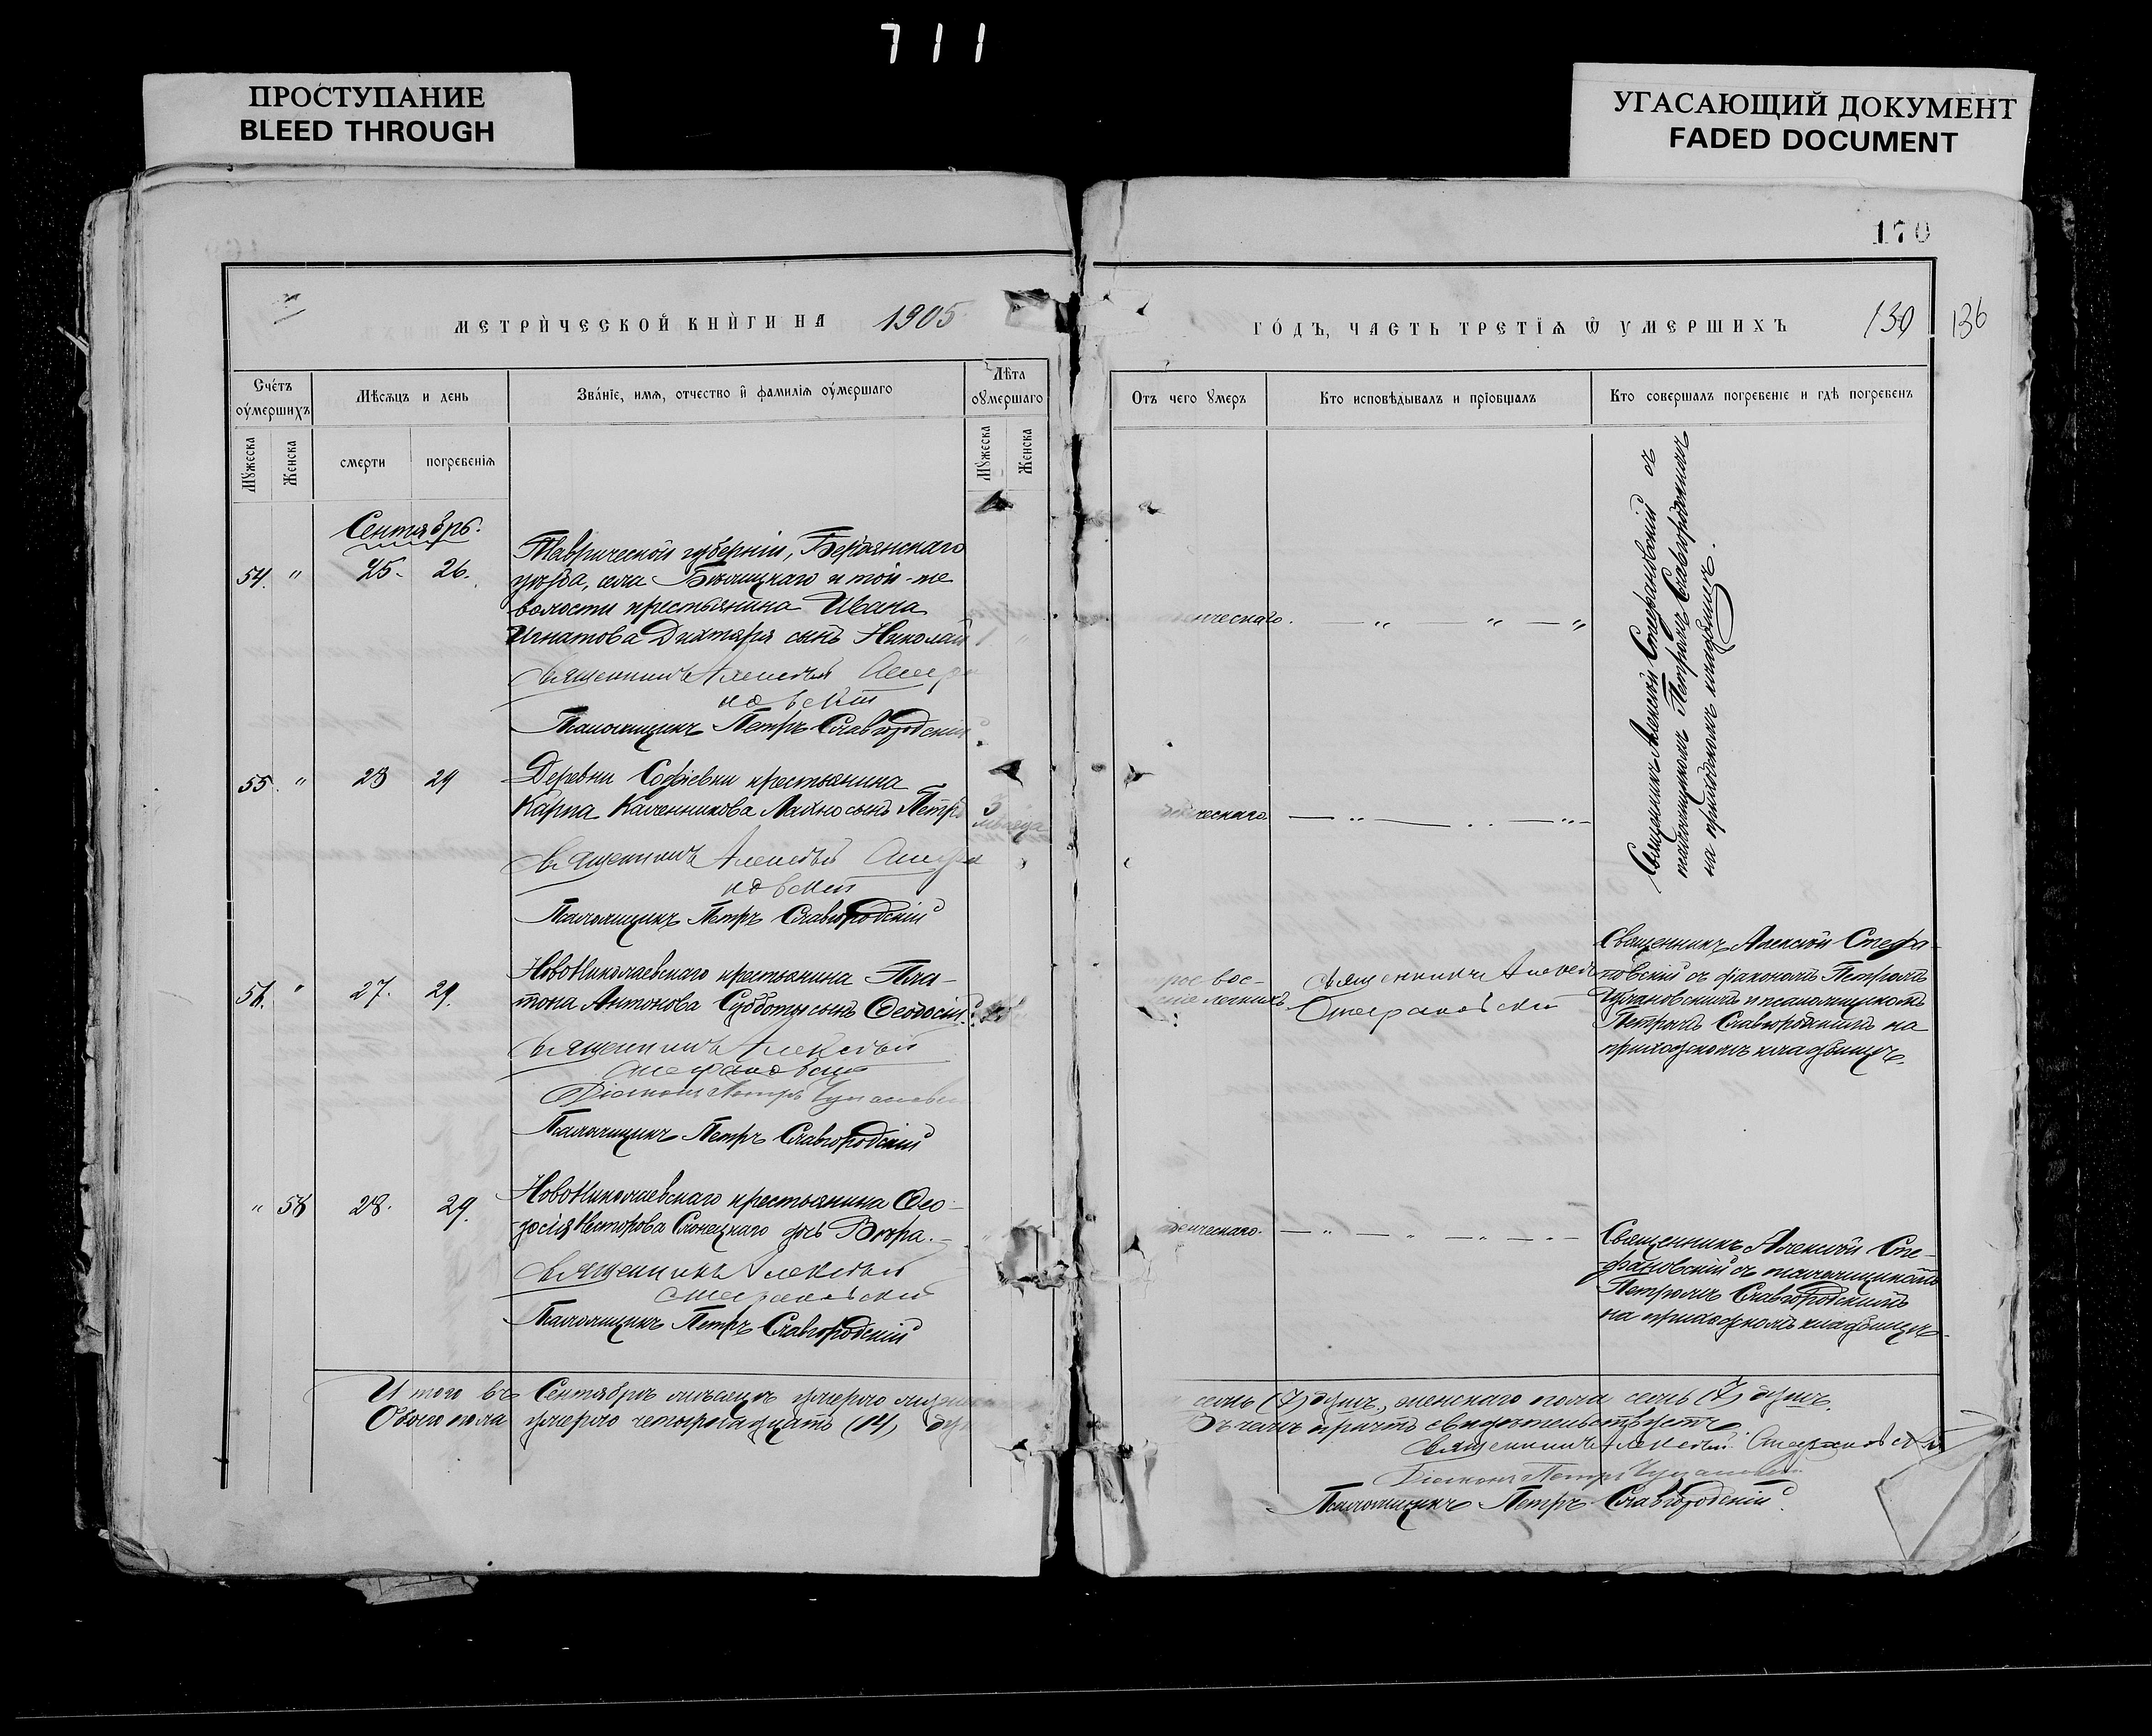 711
ПРОСТУПАНИЕ
BLEED THROUGH
УГАСАЮЩИЙ ДОКУМЕНТ
FADED DOCUMENT
170
МЕТРИЧЕСКОЙ КНИГИ НА 1905
ГОДЪ, ЧАСТЬ ТРЕТІЯ Ѿ УМЕРШИХЪ
130 136
Счетъ оумершихъ
Мѣсяцъ и день
Званіе, имя, отчество и фамилія оумершаго
Лѣта оумершаго
Отъ чего умеръ
Кто исповѣдывалъ и пріобщалъ
Кто совершалъ погребеніе и гдѣ погребенъ
Мужеска
Женска
смерти
погребенія
Мужеска
Женска
Сентябрь.
54. " 25. 26.
Таврической губерніи, Бердянскаго
уѣзда, села Бѣлицкаго и той-же
волости крестьянина Ивана
Игнатова Дихтяря сынъ Николай
Священникъ Алексѣй Стефа
новскій
Псаломщикъ Петръ Славгородскій
Священникъ Алексѣй Стефановскій съ
псаломщикомъ Петромъ Славгородскимъ
на приходскомъ кладбищѣ.
55. " 28 29
Деревни Софіевки крестьянина
Карпа Каленникова Махно сынъ Петръ
3 мѣсяца
Священникъ Алексѣй Стефа
новскій
Псаломщикъ Петръ Славгородскій
56. " 27. 29.
НовоНиколаевскаго крестьянина Пла-
тона Антонова Субботы сынъ Ѳеодосій.
Священникъ Алексѣй
Стефановскій
Діаконъ Петръ
Псаломщикъ Петръ Славгородскій
Священникъ Алексѣй
Стефановскій
Священникъ Алексѣй Стефа-
новскій съ діакономъ Петромъ
и псаломщикомъ
Петромъ Славгородскимъ на
приходскомъ кладбищѣ.
" 58 28. 29.
НовоНиколаевскаго крестьянина Ѳео-
досія Несторова Слонецкаго дочь Вѣра.
Священникъ Алексѣй
Стефановскій
Псаломщикъ Петръ Славгородскій
Священникъ Алексѣй Сте-
фановскій съ псаломщикомъ
Петромъ Славгородскимъ
на приходскомъ кладбищѣ.
Итого въ Сентябрѣ мѣсяцѣ умерло
семь (7) душъ, женскаго пола семь (7) душъ.
Обоего пола умерло четырнадцать (14)
Въ чемъ причтъ свидѣтельствуетъ
Священникъ Алексѣй Стефановскій
Діаконъ Петръ
Псаломщикъ Петръ Славгородскій.